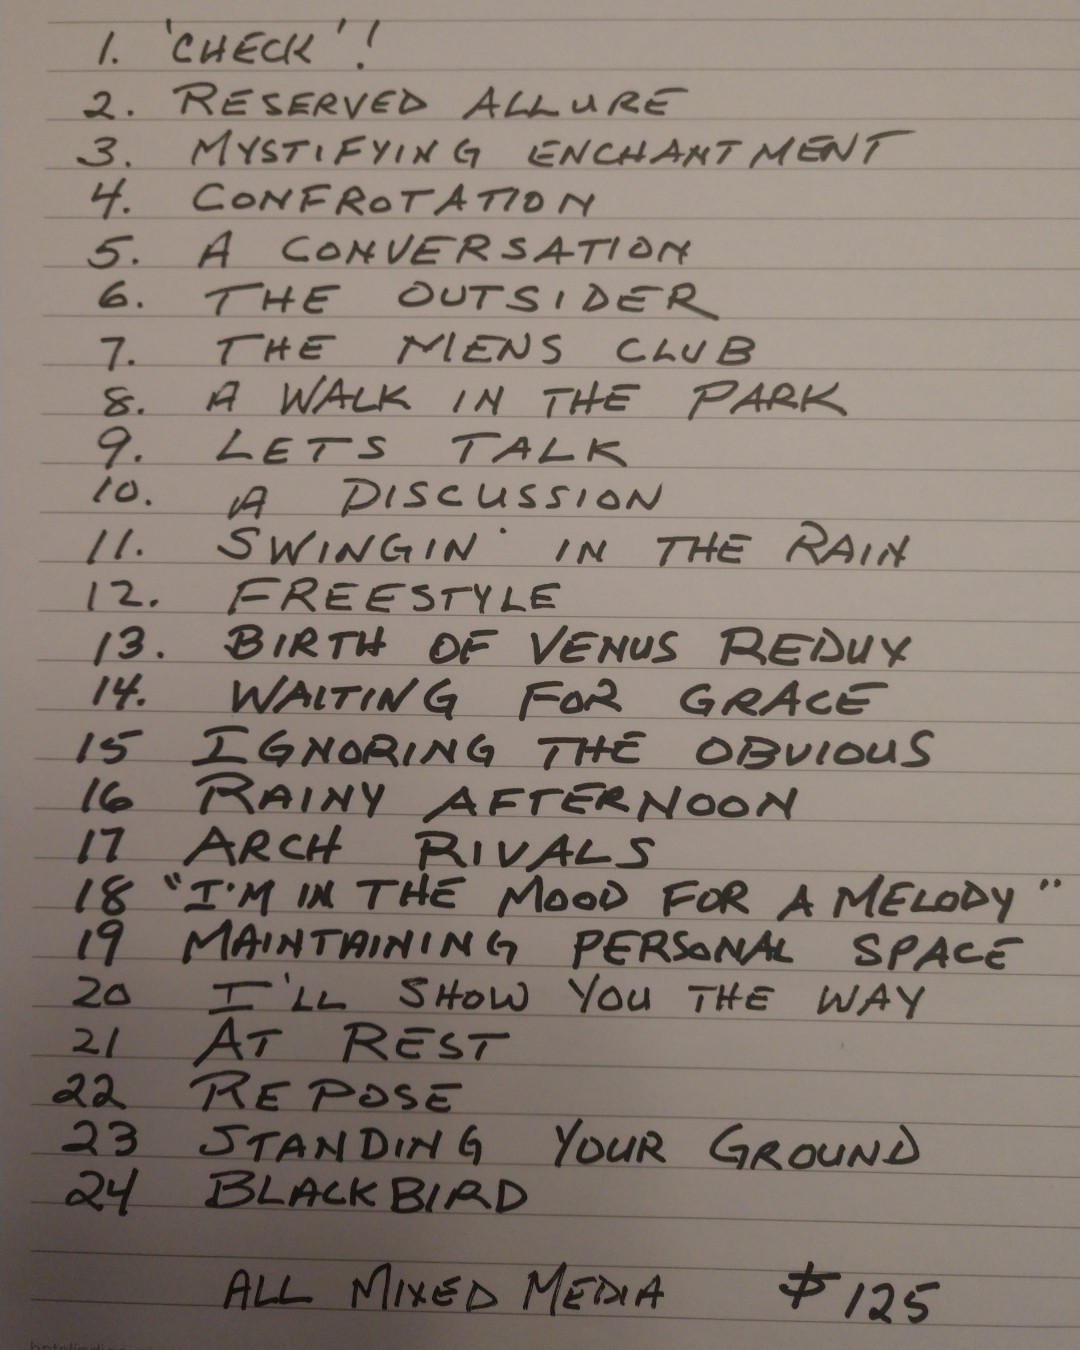 1. 'CHECK'!
2. RESERVED ALLURE
3. MYSTIFYING ENCHANTMENT
4. CONFROTATION
5. A CONVERSATION
6. THE OUTSIDER
7. THE MENS CLUB
8. A WALK IN THE PARK
9. LETS TALK
10. A DISCUSSION
11. SWINGIN' IN THE RAIN
12. FREESTYLE
13. BIRTH OF VENUS REDUX
14. WAITING FOR GRACE
15 IGNORING THE OBVIOUS
16 RAINY AFTERNOON
17 ARCH RIVALS
18 "I'M IN THE MOOD FOR A MELODY"
19 MAINTAINING PERSONAL SPACE
20 I'LL SHOW YOU THE WAY
21 AT REST
22 REPOSE
23 STANDING YOUR GROUND
24 BLACKBIRD
ALL MIXED MEDIA $125